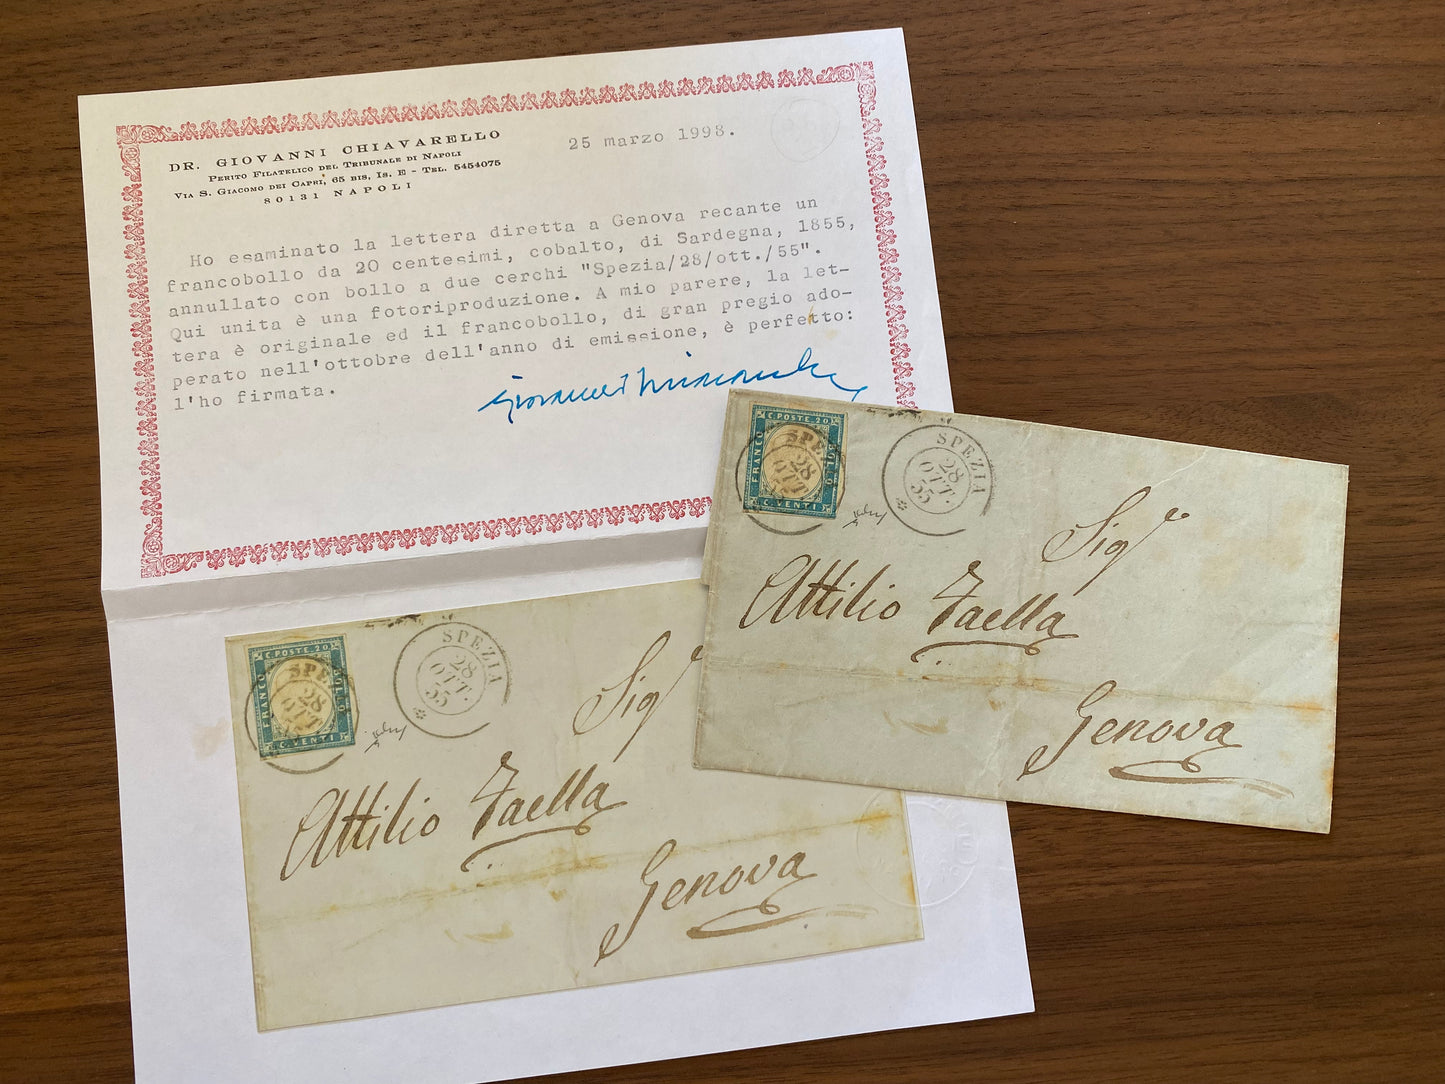 DR. GIOVANNI CHIAVARELLO
PERITO FILATELICO DEL TRIBUNALE DI NAPOLI
VIA S. GIACOMO DEI CAPRI, 65 BIS, IS. E - TEL. 5454075
80131 NAPOLI
25 marzo 1998.
Ho esaminato la lettera diretta a Genova recante un
francobollo da 20 centesimi, cobalto, di Sardegna, 1855,
annullato con bollo a due cerchi "Spezia/28/ott./55".
Qui unita è una fotoriproduzione. A mio parere, la let-
tera è originale ed il francobollo, di gran pregio ado-
perato nell'ottobre dell'anno di emissione, è perfetto:
l'ho firmata.
C. POSTE 20
FRANCO
BOLLO
C. VENTI
SPE
28
OTT
SPEZIA
28
OTT.
55
Sigr
Attilio Taella
Genova
C. POSTE 20.
FRANCO
BOLLO
C. VENTI
SPE
28
OTT
SPEZIA
28
OTT.
55
Sigr
Attilio Taella
Genova